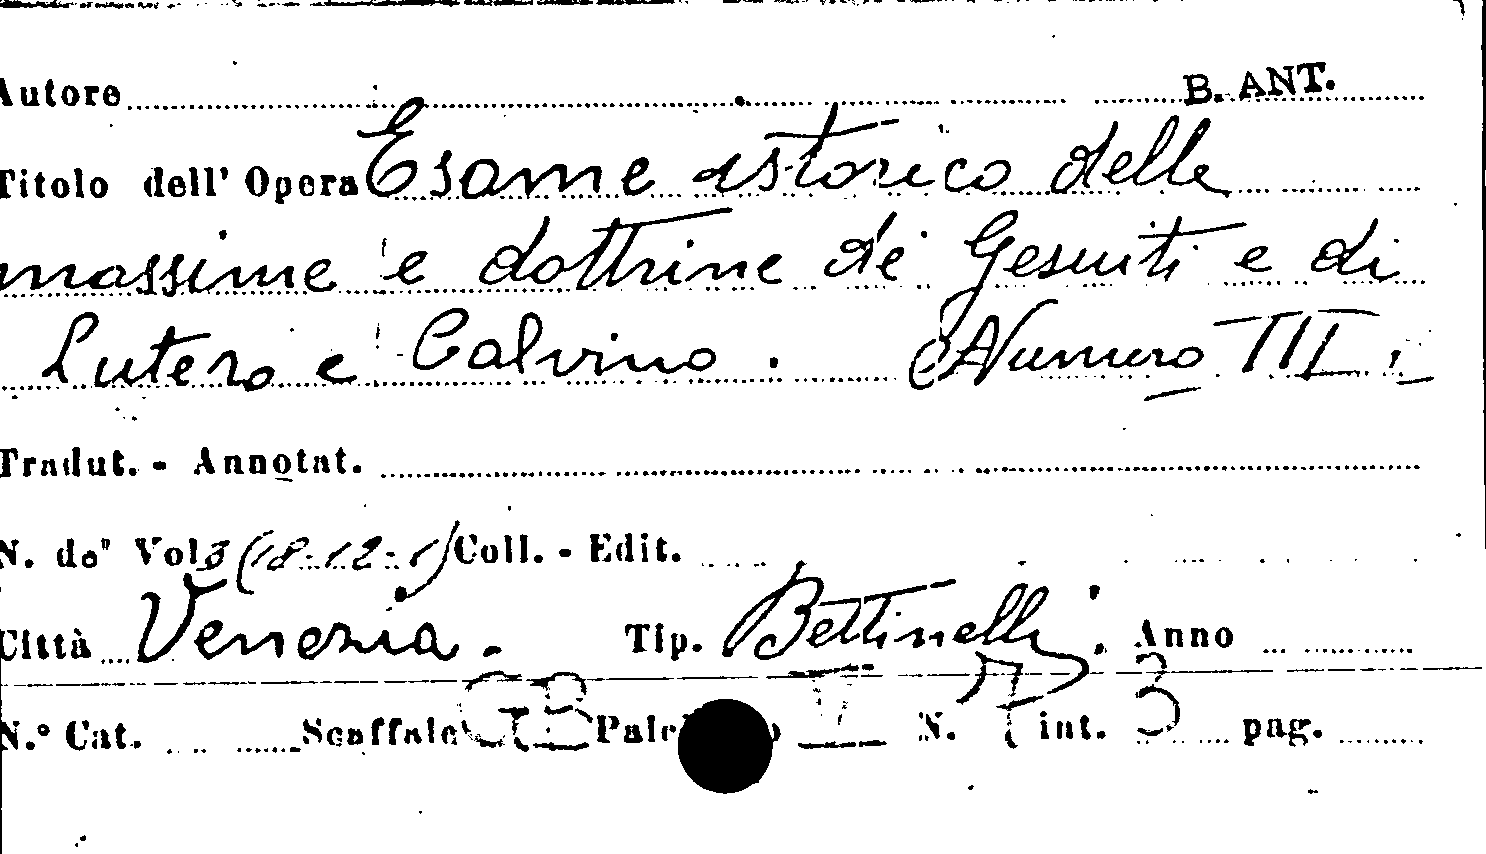 Autore B. ANT.
Titolo dell' Opera Esame istorico delle
massime e dottrine de' Gesuiti e di
Lutero e Calvino. Numero III.
Tradut. - Annotat.
N. de" Vol. 3 (18-12-1) Coll. - Edit.
Città Venezia. Tip. Bettinelli. Anno
N.° Cat. Scaffale GB V N. 7 int. 3 pag.